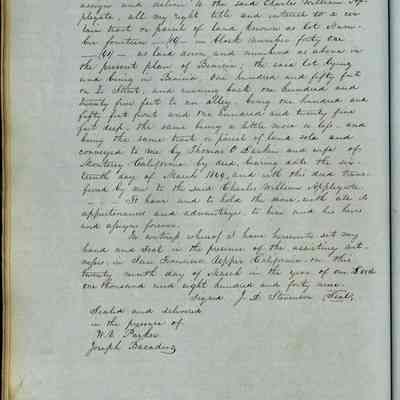 assign and deliver to the said Charles William Ap-
plegate, all my right title and interest to a cer-
tain tract or parcel of land known as lot Num-
ber fourteen — 14 — in block number forty one
— 41 — as laid down and numbered as above in
the present plan of Benicia; the said lot lying
and being in Benicia, one hundred and fifty feet
on Street, and running back one hundred and
twenty five feet to an alley, being one hundred and
fifty feet front and one hundred and twenty five
feet deep, the same being a little more or less, and
being the same tract or parcel of land sold and
conveyed to me by Thomas O Larkin and wife of
Monterey California by deed bearing date the six-
teenth day of March 1849, and with this deed trans-
fered by me to the said Charles William Applegate.
To have and to hold the same, with all its
appurtenances and advantages, to him and his heirs
and assigns forever.
In witness whereof I have hereunto set my
hand and seal in the presence of the assisting wit-
nesses, in San Francisco Upper California on this
twenty ninth day of March in the year of our Lord
one thousand and eight hundred and forty nine.
Signed J. D. Stevenson (Seal)
Sealed and delivered
in the presence of
W. R. Parker
Joseph